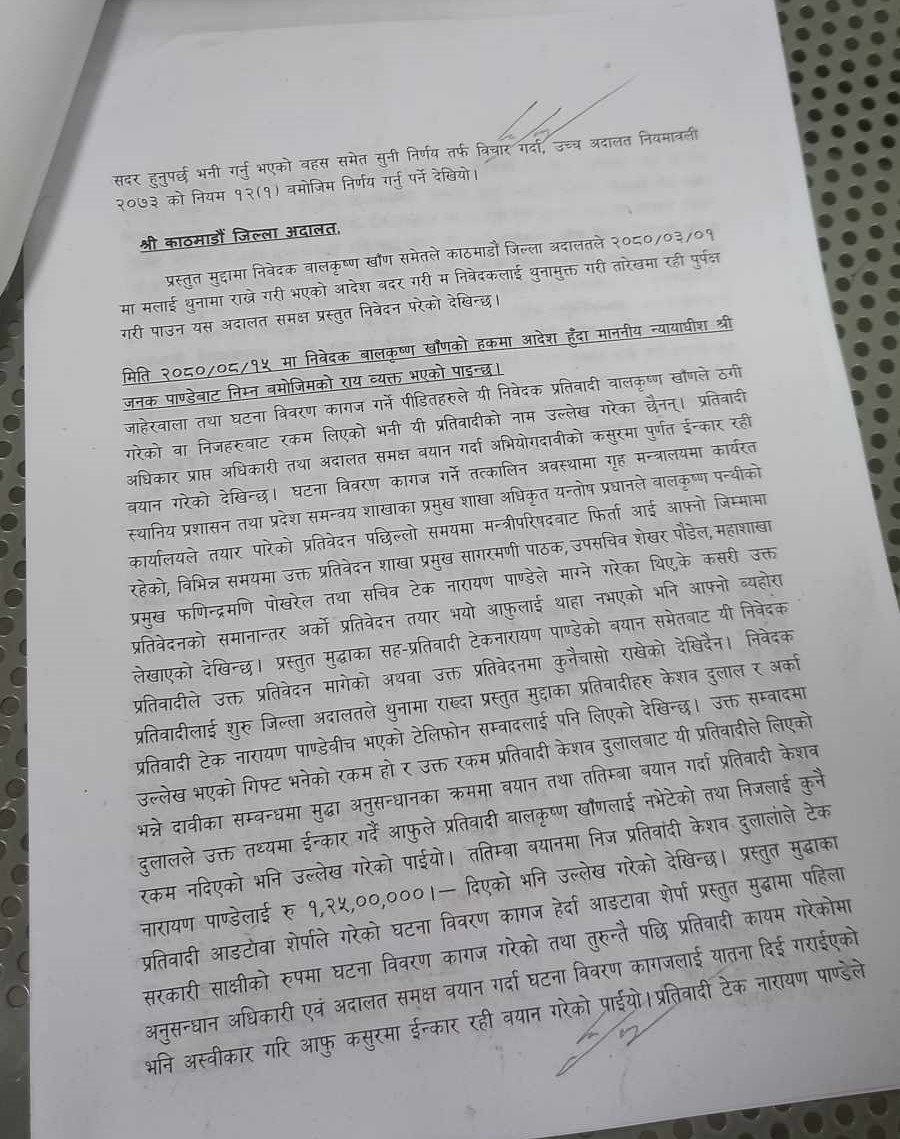 सदर हुनुपर्छ भनी गर्नु भएको वहस समेत सुनी निर्णय तर्फ विचार गर्दा, उच्च अदालत नियमावली
२०७३ को नियम १२(१) वमोजिम निर्णय गर्नु पर्ने देखियो।
श्री काठमाडौं जिल्ला अदालत,
प्रस्तुत मुद्दामा निवेदक वालकृष्ण खाँण समेतले काठमाडौं जिल्ला अदालतले २०८०/०३/०१
मा मलाई थुनामा राख्ने गरी भएको आदेश बदर गरी म निवेदकलाई थुनामुक्त गरी तारेखमा रही पुर्पक्ष
गरी पाउन यस अदालत समक्ष प्रस्तुत निवेदन परेको देखिन्छ।
मिति २०८०/०८/१५ मा निवेदक बालकृष्ण खाँणको हकमा आदेश हुँदा माननीय न्यायाधीश श्री
जनक पाण्डेबाट निम्न बमोजिमको राय व्यक्त भएको पाइन्छ।
जाहेरवाला तथा घटना विवरण कागज गर्ने पीडितहरुले यी निवेदक प्रतिवादी वालकृष्ण खाँणले ठगी
गरेको वा निजहरुवाट रकम लिएको भनी यी प्रतिवादीको नाम उल्लेख गरेका छैनन्। प्रतिवादी
अधिकार प्राप्त अधिकारी तथा अदालत समक्ष बयान गर्दा अभियोगदावीको कसुरमा पुर्णत ईन्कार रही
वयान गरेको देखिन्छ। घटना विवरण कागज गर्ने तत्कालिन अवस्थामा गृह मन्त्रालयमा कार्यरत
स्थानिय प्रशासन तथा प्रदेश समन्वय शाखाका प्रमुख शाखा अधिकृत यन्तोष प्रधानले वालकृष्ण पन्थीको
कार्यालयले तयार पारेको प्रतिवेदन पछिल्लो समयमा मन्त्रीपरिषदवाट फिर्ता आई आफ्नो जिम्मामा
रहेको, विभिन्न समयमा उक्त प्रतिवेदन शाखा प्रमुख सागरमणी पाठक, उपसचिव शेखर पौडेल, महाशाखा
प्रमुख फणिन्द्रमणि पोखरेल तथा सचिव टेक नारायण पाण्डेले माग्ने गरेका थिए,के कसरी उक्त
प्रतिवेदनको समानान्तर अर्को प्रतिवेदन तयार भयो आफुलाई थाहा नभएको भनि आफ्नो व्यहोरा
लेखाएको देखिन्छ। प्रस्तुत मुद्धाका सह-प्रतिवादी टेकनारायण पाण्डेको बयान समेतबाट यी निवेदक
प्रतिवादीले उक्त प्रतिवेदन मागेको अथवा उक्त प्रतिवेदनमा कुनैचासो राखेको देखिदैन। निवेदक
प्रतिवादीलाई शुरु जिल्ला अदालतले थुनामा राख्दा प्रस्तुत मुद्दाका प्रतिवादीहरु केशव दुलाल र अर्का
प्रतिवादी टेक नारायण पाण्डेवीच भएको टेलिफोन सम्वादलाई पनि लिएको देखिन्छ। उक्त सम्वादमा
उल्लेख भएको गिफ्ट भनेको रकम हो र उक्त रकम प्रतिवादी केशव दुलालबाट यी प्रतिवादीले लिएको
भन्ने दावीका सम्वन्धमा मुद्धा अनुसन्धानका क्रममा वयान तथा ततिम्बा बयान गर्दा प्रतिवादी केशव
दुलालले उक्त तथ्यमा ईन्कार गर्दै आफुले प्रतिवादी वालकृष्ण खाँणलाई नभेटेको तथा निजलाई कुनै
रकम नदिएको भनि उल्लेख गरेको पाईयो। ततिम्वा बयानमा निज प्रतिवांदी केशव दुलालांले टेक
नारायण पाण्डेलाई रु १,२५,००,०००।— दिएको भनि उल्लेख गरेको देखिन्छ। प्रस्तुत मुद्धाका
प्रतिवादी आङटावा शेर्पाले गरेको घटना विवरण कागज हेर्दा आङटावा शेर्पा प्रस्तुत मुद्धामा पहिला
सरकारी साक्षीको रुपमा घटना विवरण कागज गरेको तथा तुरुन्तै पछि प्रतिवादी कायम गरेकोमा
अनुसन्धान अधिकारी एवं अदालत समक्ष बयान गर्दा घटना विवरण कागजलाई यातना दिई गराईएको
भनि अस्वीकार गरि आफु कसुरमा ईन्कार रही वयान गरेको पाईयो। प्रतिवादी टेक नारायण पाण्डेले